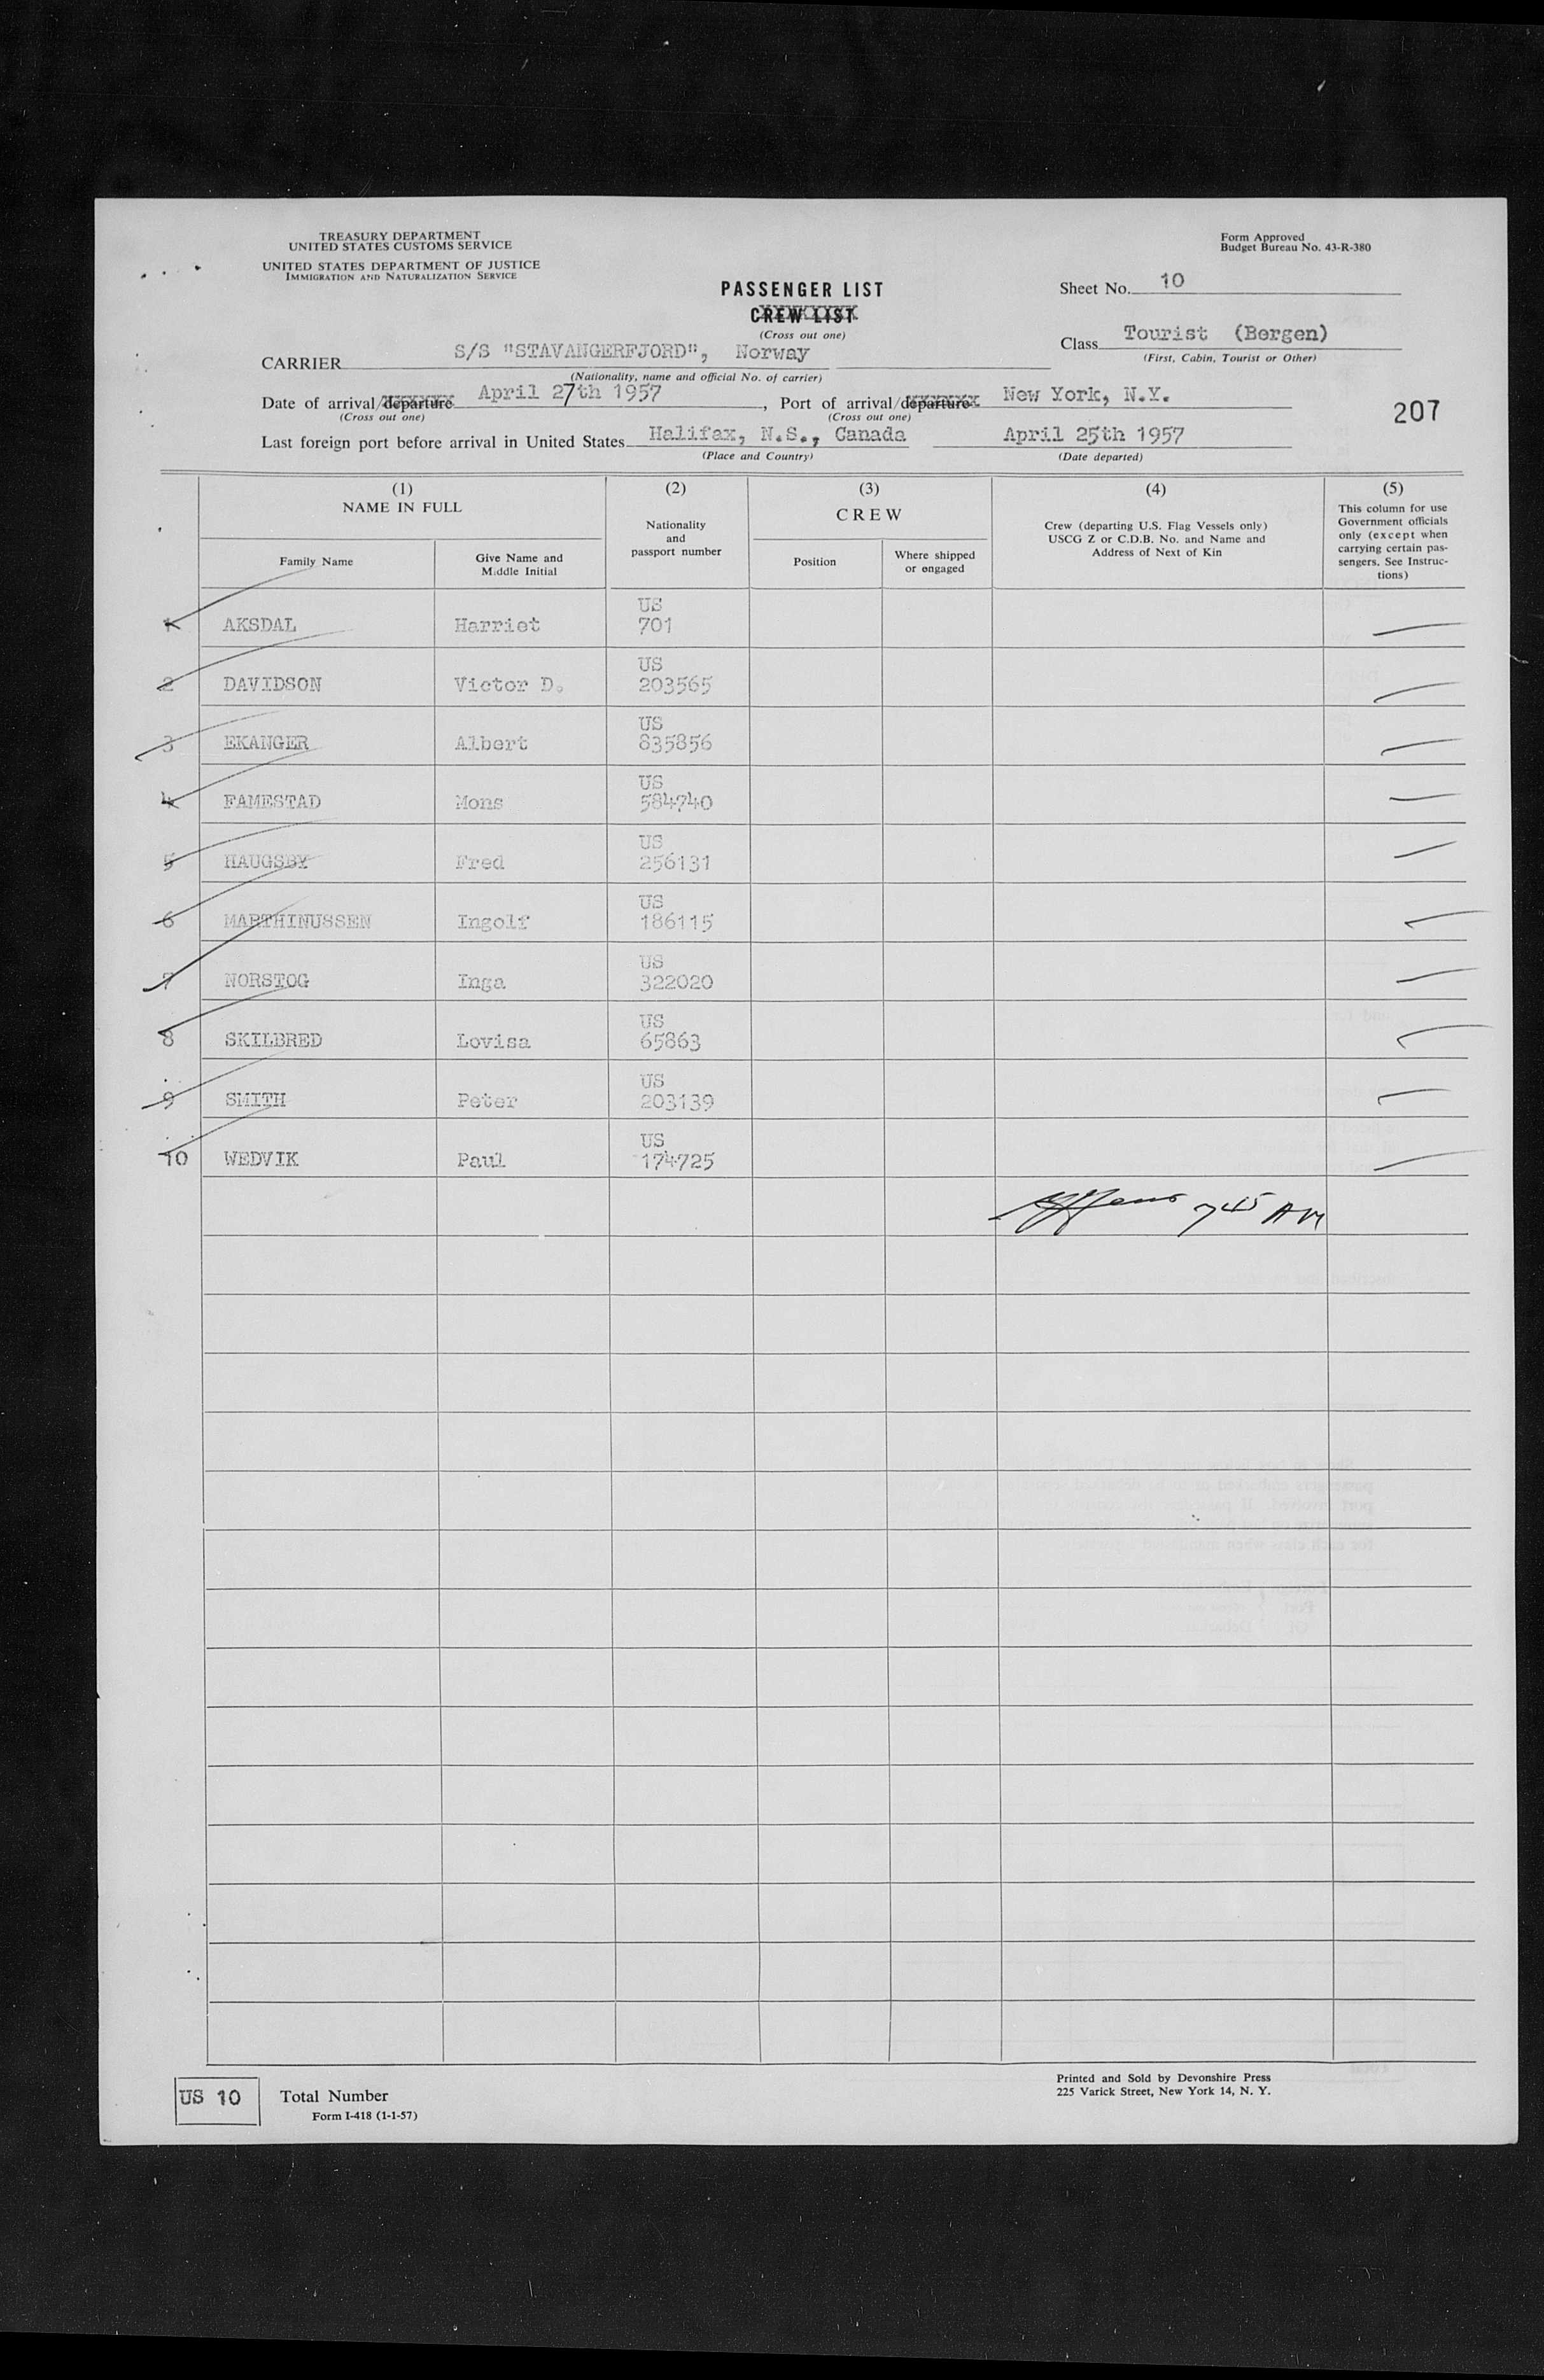 TREASURY DEPARTMENT
UNITED STATES CUSTOMS SERVICE
UNITED STATES DEPARTMENT OF JUSTICE
IMMIGRATION AND NATURALIZATION SERVICE
Form Approved
Budget Bureau No. 43-R-380
PASSENGER LIST
CREW LIST
(Cross out one)
Sheet No. 10
Class Tourist (Bergen)
(First, Cabin, Tourist or Other)
CARRIER S/S "STAVANGERFJORD", Norway
(Nationality, name and official No. of carrier)
Date of arrival/departure April 27th 1957, Port of arrival/departure New York, N.Y.
(Cross out one) (Cross out one)
207
Last foreign port before arrival in United States Halifax, N.S., Canada April 25th 1957
(Place and Country) (Date departed)
(1) (2) (3) (4) (5)
NAME IN FULL
Family Name
Give Name and
Middle Initial
Nationality
and
passport number
CREW
Position
Where shipped
or engaged
Crew (departing U.S. Flag Vessels only)
USCG Z or C.D.B. No. and Name and
Address of Next of Kin
This column for use
Government officials
only (except when
carrying certain pas-
sengers. See Instruc-
tions)
US
1 AKSDAL Harriet 701
US
2 DAVIDSON Victor D. 203565
US
3 EKANGER Albert 835856
US
4 FAMESTAD Mons 584740
US
5 HAUGSBY Fred 256131
US
6 MARTHINUSSEN Ingolf 186115
US
7 NORSTOG Inga 322020
US
8 SKILBRED Lovisa 65863
US
9 SMITH Peter 203139
US
10 WEDVIK Paul 174725
7 45 AM
US 10 Total Number
Form I-418 (1-1-57)
Printed and Sold by Devonshire Press
225 Varick Street, New York 14, N. Y.